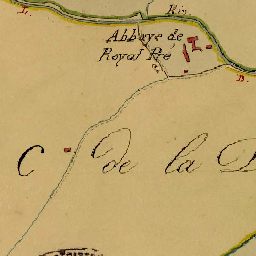 L.
Riv
Abbaye de
Royal Pré
D.
C de la